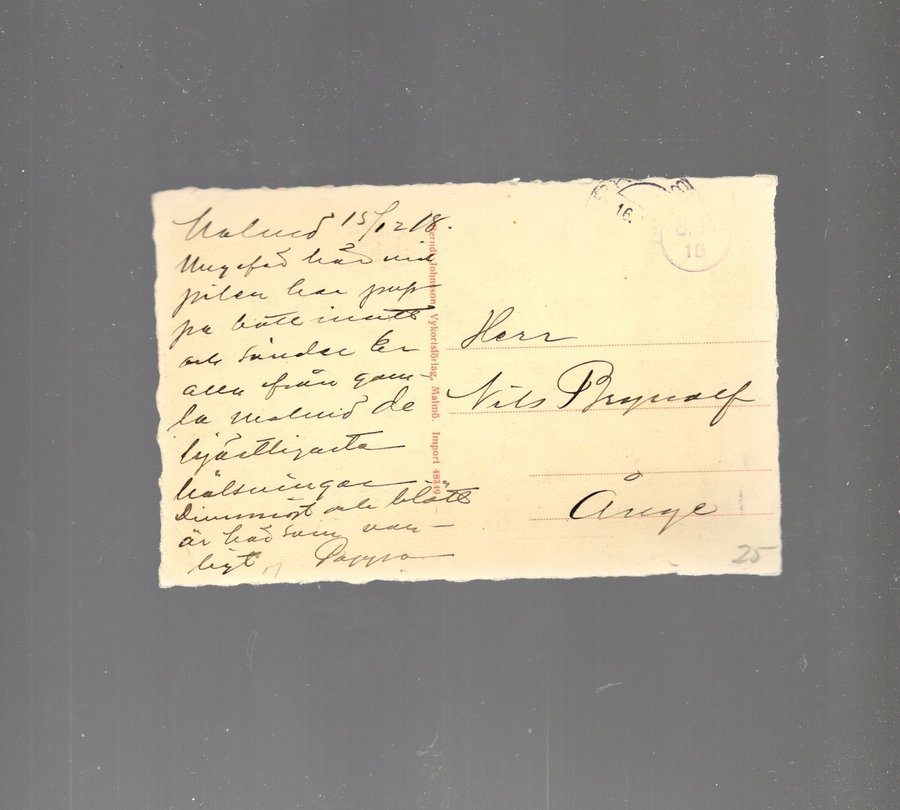 Malmö 15/12 18.
Ungefär här vid
pilen har pap-
pa bott inatt
och sänder Er
alla från gam-
la Malmö de
hjärtligaste
hälsningar
Dimmigt och blött
är här som van-
ligt Pappa
Bernds Johnsson, Vykortsförlag, Malmö. Import 48349
16.
18
Herr
Nils Brynolf
Ånge
25